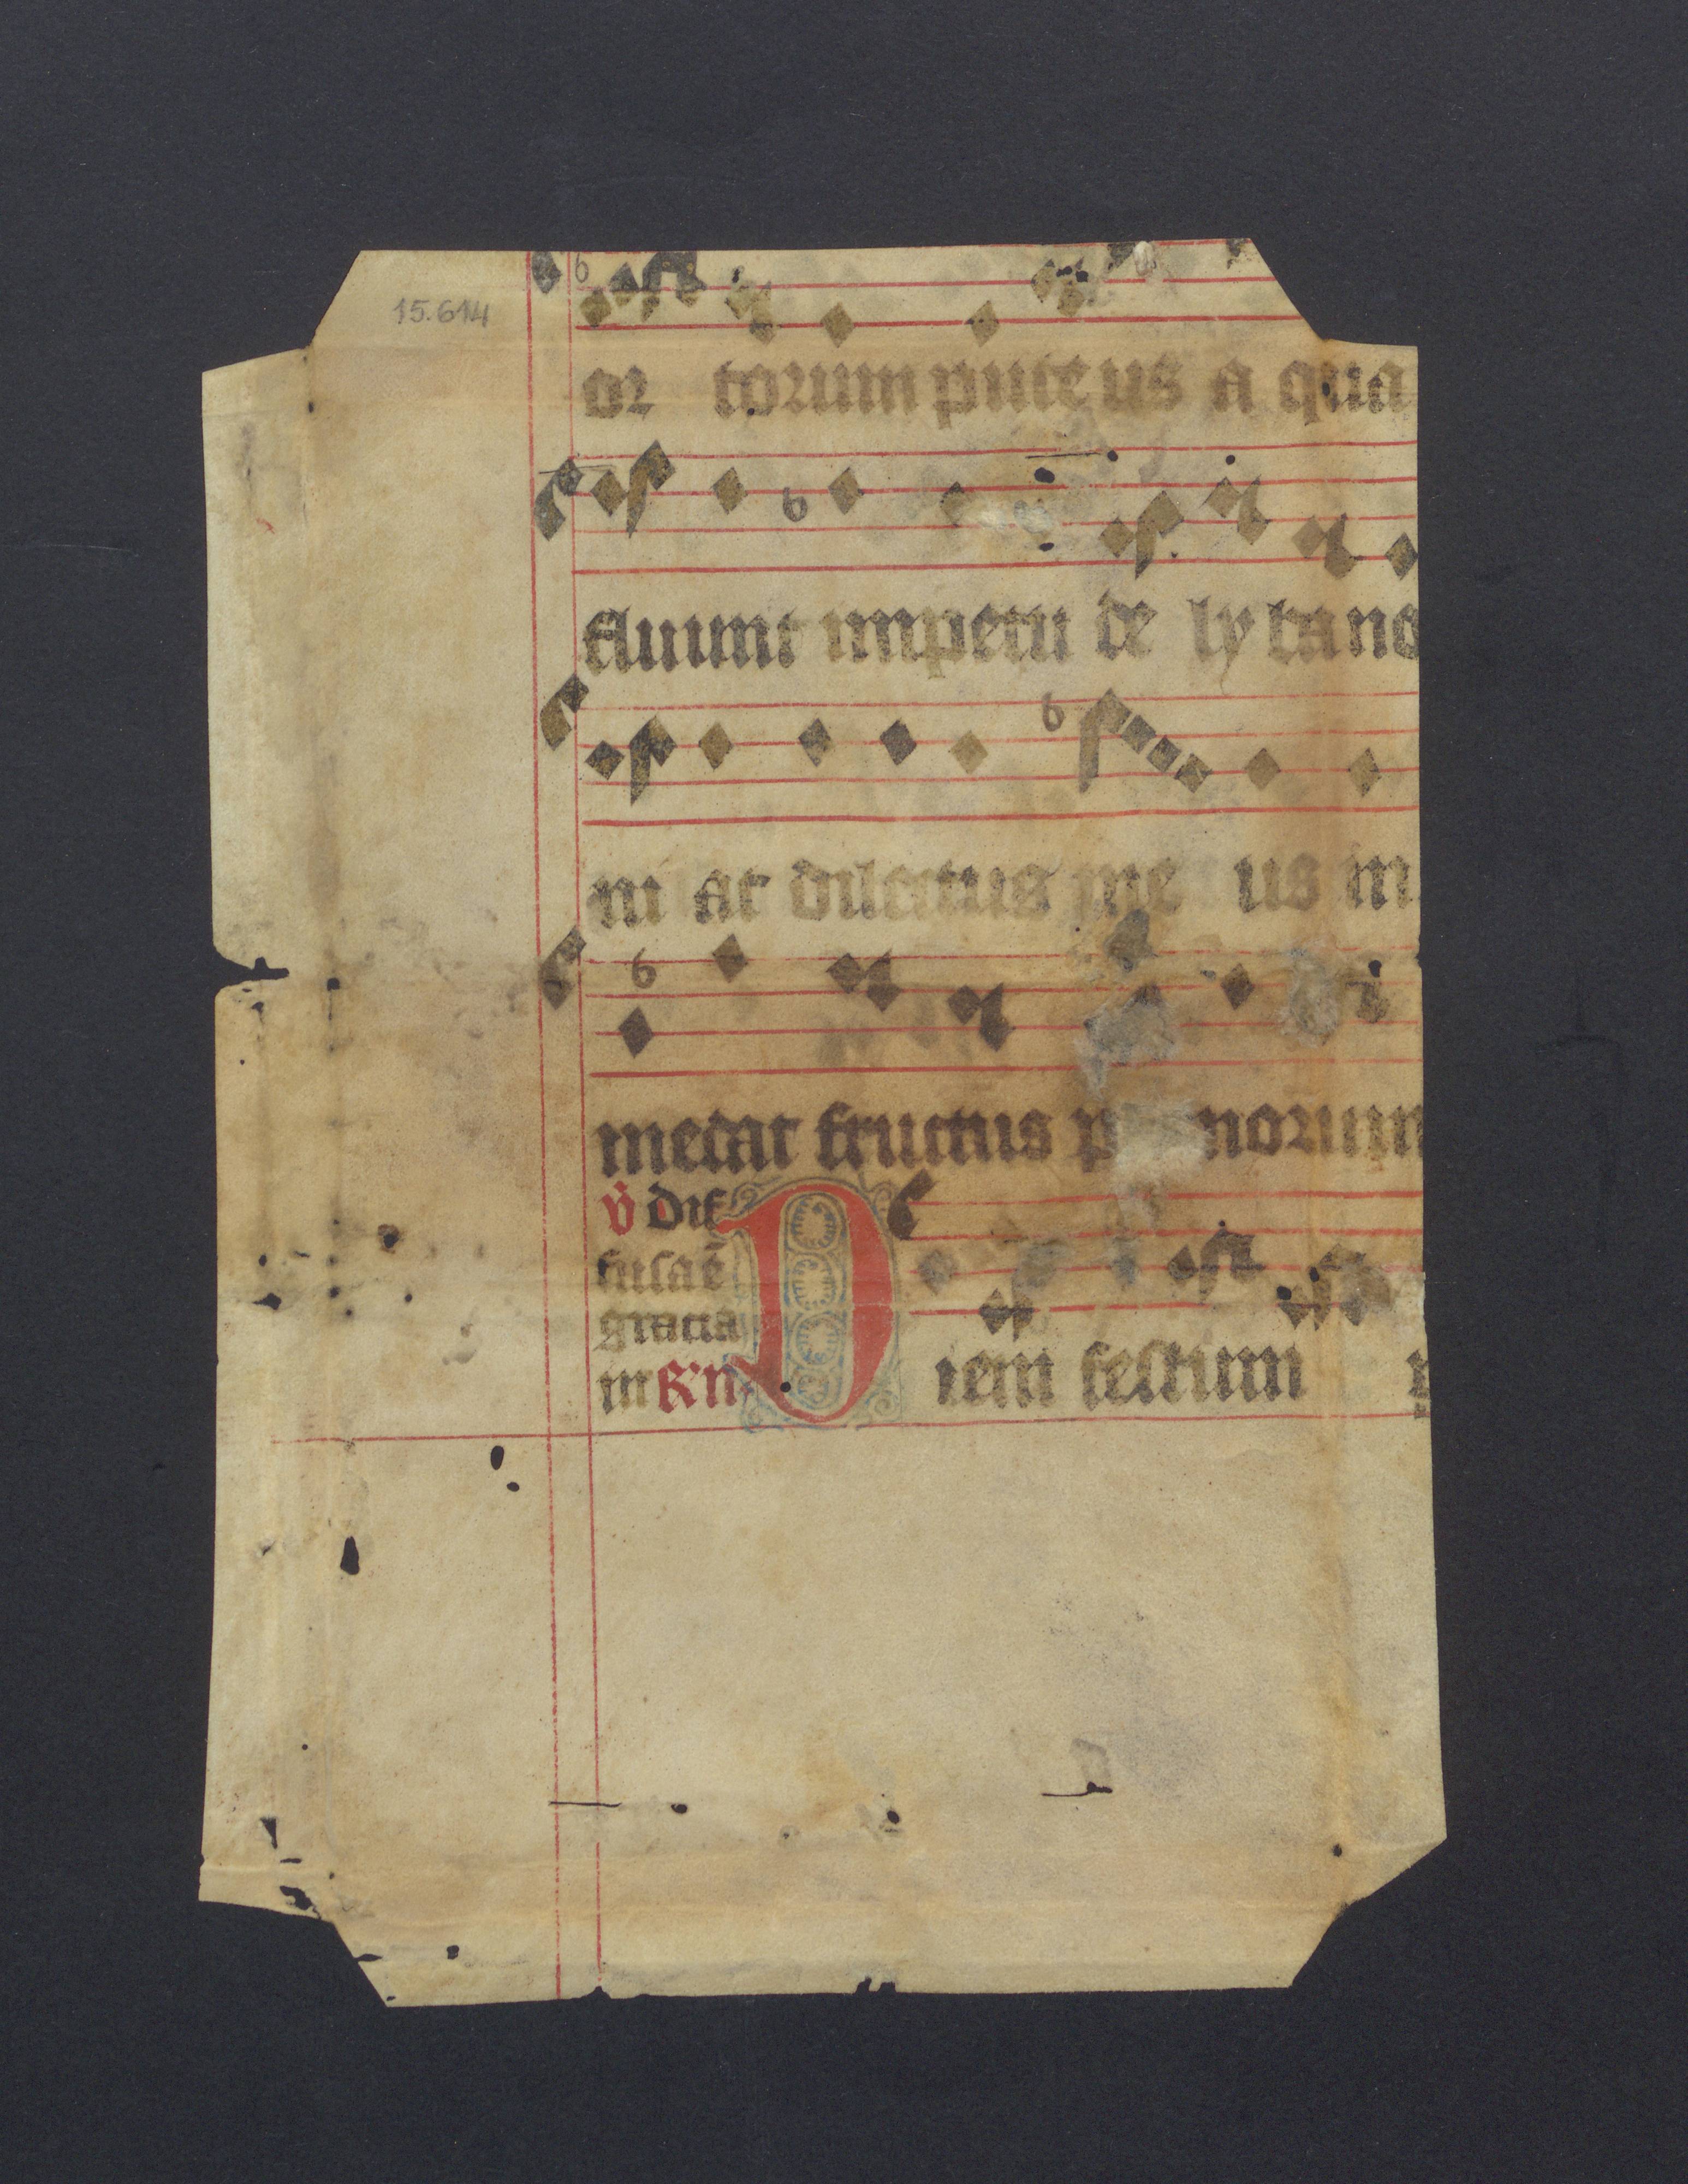 15.614
or torum pute us a qua
fluunt impetu de ly bano
ni at dilectus me us in
medat fructus p norum
v̊ dif
fusa ē
gracia
in R'n
D iem festum